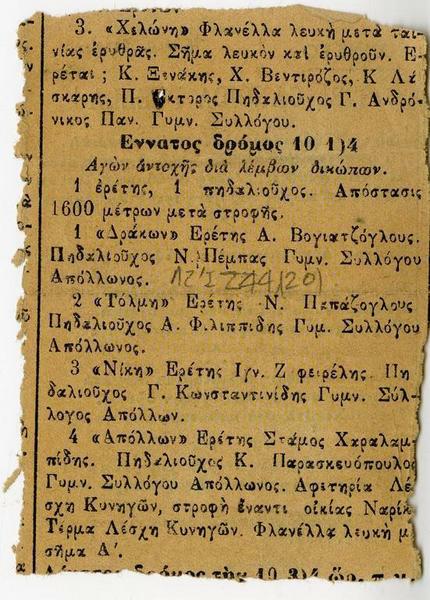 3. «Χελώνη» Φλανέλλα λευκὴ μετὰ ται-
νίας ἐρυθρᾶς. Σῆμα λευκὸν καὶ ἐρυθροῦν. Ἐ-
ρέται ; Κ. Ξενάκης, Χ. Βεντιρόζος, Κ Λά-
σκαρης, Π. Πηδαλιοῦχος Γ. Ἀνδρό-
νικος Παν. Γυμν. Συλλόγου.
Ἔννατος δρόμος 10 1)4
Ἀγὼν ἀντοχῆς διὰ λέμβων δικώπων.
1 ἐρέτης, 1 πηδαλιοῦχος. Ἀπόστασις
1600 μέτρων μετὰ στροφῆς.
1 «Δράκων» Ἐρέτης Α. Βογιατζόγλους.
Πηδαλιοῦχος Ν. Πέμπας Γυμν. Συλλόγου
Ἀπόλλωνος.
2 «Τόλμη» Ἐρέτης Ν. Παπάζογλους
Πηδαλιοῦχος Α. Φιλιππίδης Γυμ. Συλλόγου
Ἀπόλλωνος.
3 «Νίκη» Ἐρέτης Ιγν. Ζ φειρέλης. Πη
δαλιοῦχος Γ. Κωνσταντινίδης Γυμν. Σύλ-
λογος Ἀπόλλων.
4 «Ἀπόλλων» Ἐρέτης Στάμος Χαραλαμ-
πίδης. Πηδαλιοῦχος Κ. Παρασκευόπουλος
Γυμν. Συλλόγου Ἀπόλλωνος. Ἀφετηρία Λέ-
σχη Κυνηγῶν, στροφὴ ἔναντι οἰκίας Ναρίκ
Τέρμα Λέσχη Κυνηγῶν. Φλανέλλα λευκὴ μ
σῆμα Α'.
δρόμος τῆς 10 3)4 ὥρ. π. μ.